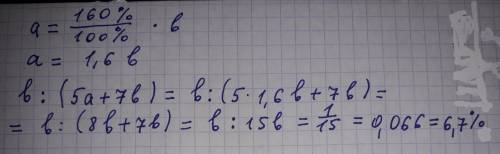 a = 160% / 100% · b
a = 1,6 b
b : (5a+7b) = b : (5·1,6b+7b) =
= b : (8b+7b) = b : 15b = 1/15 = 0,066 = 6,7%